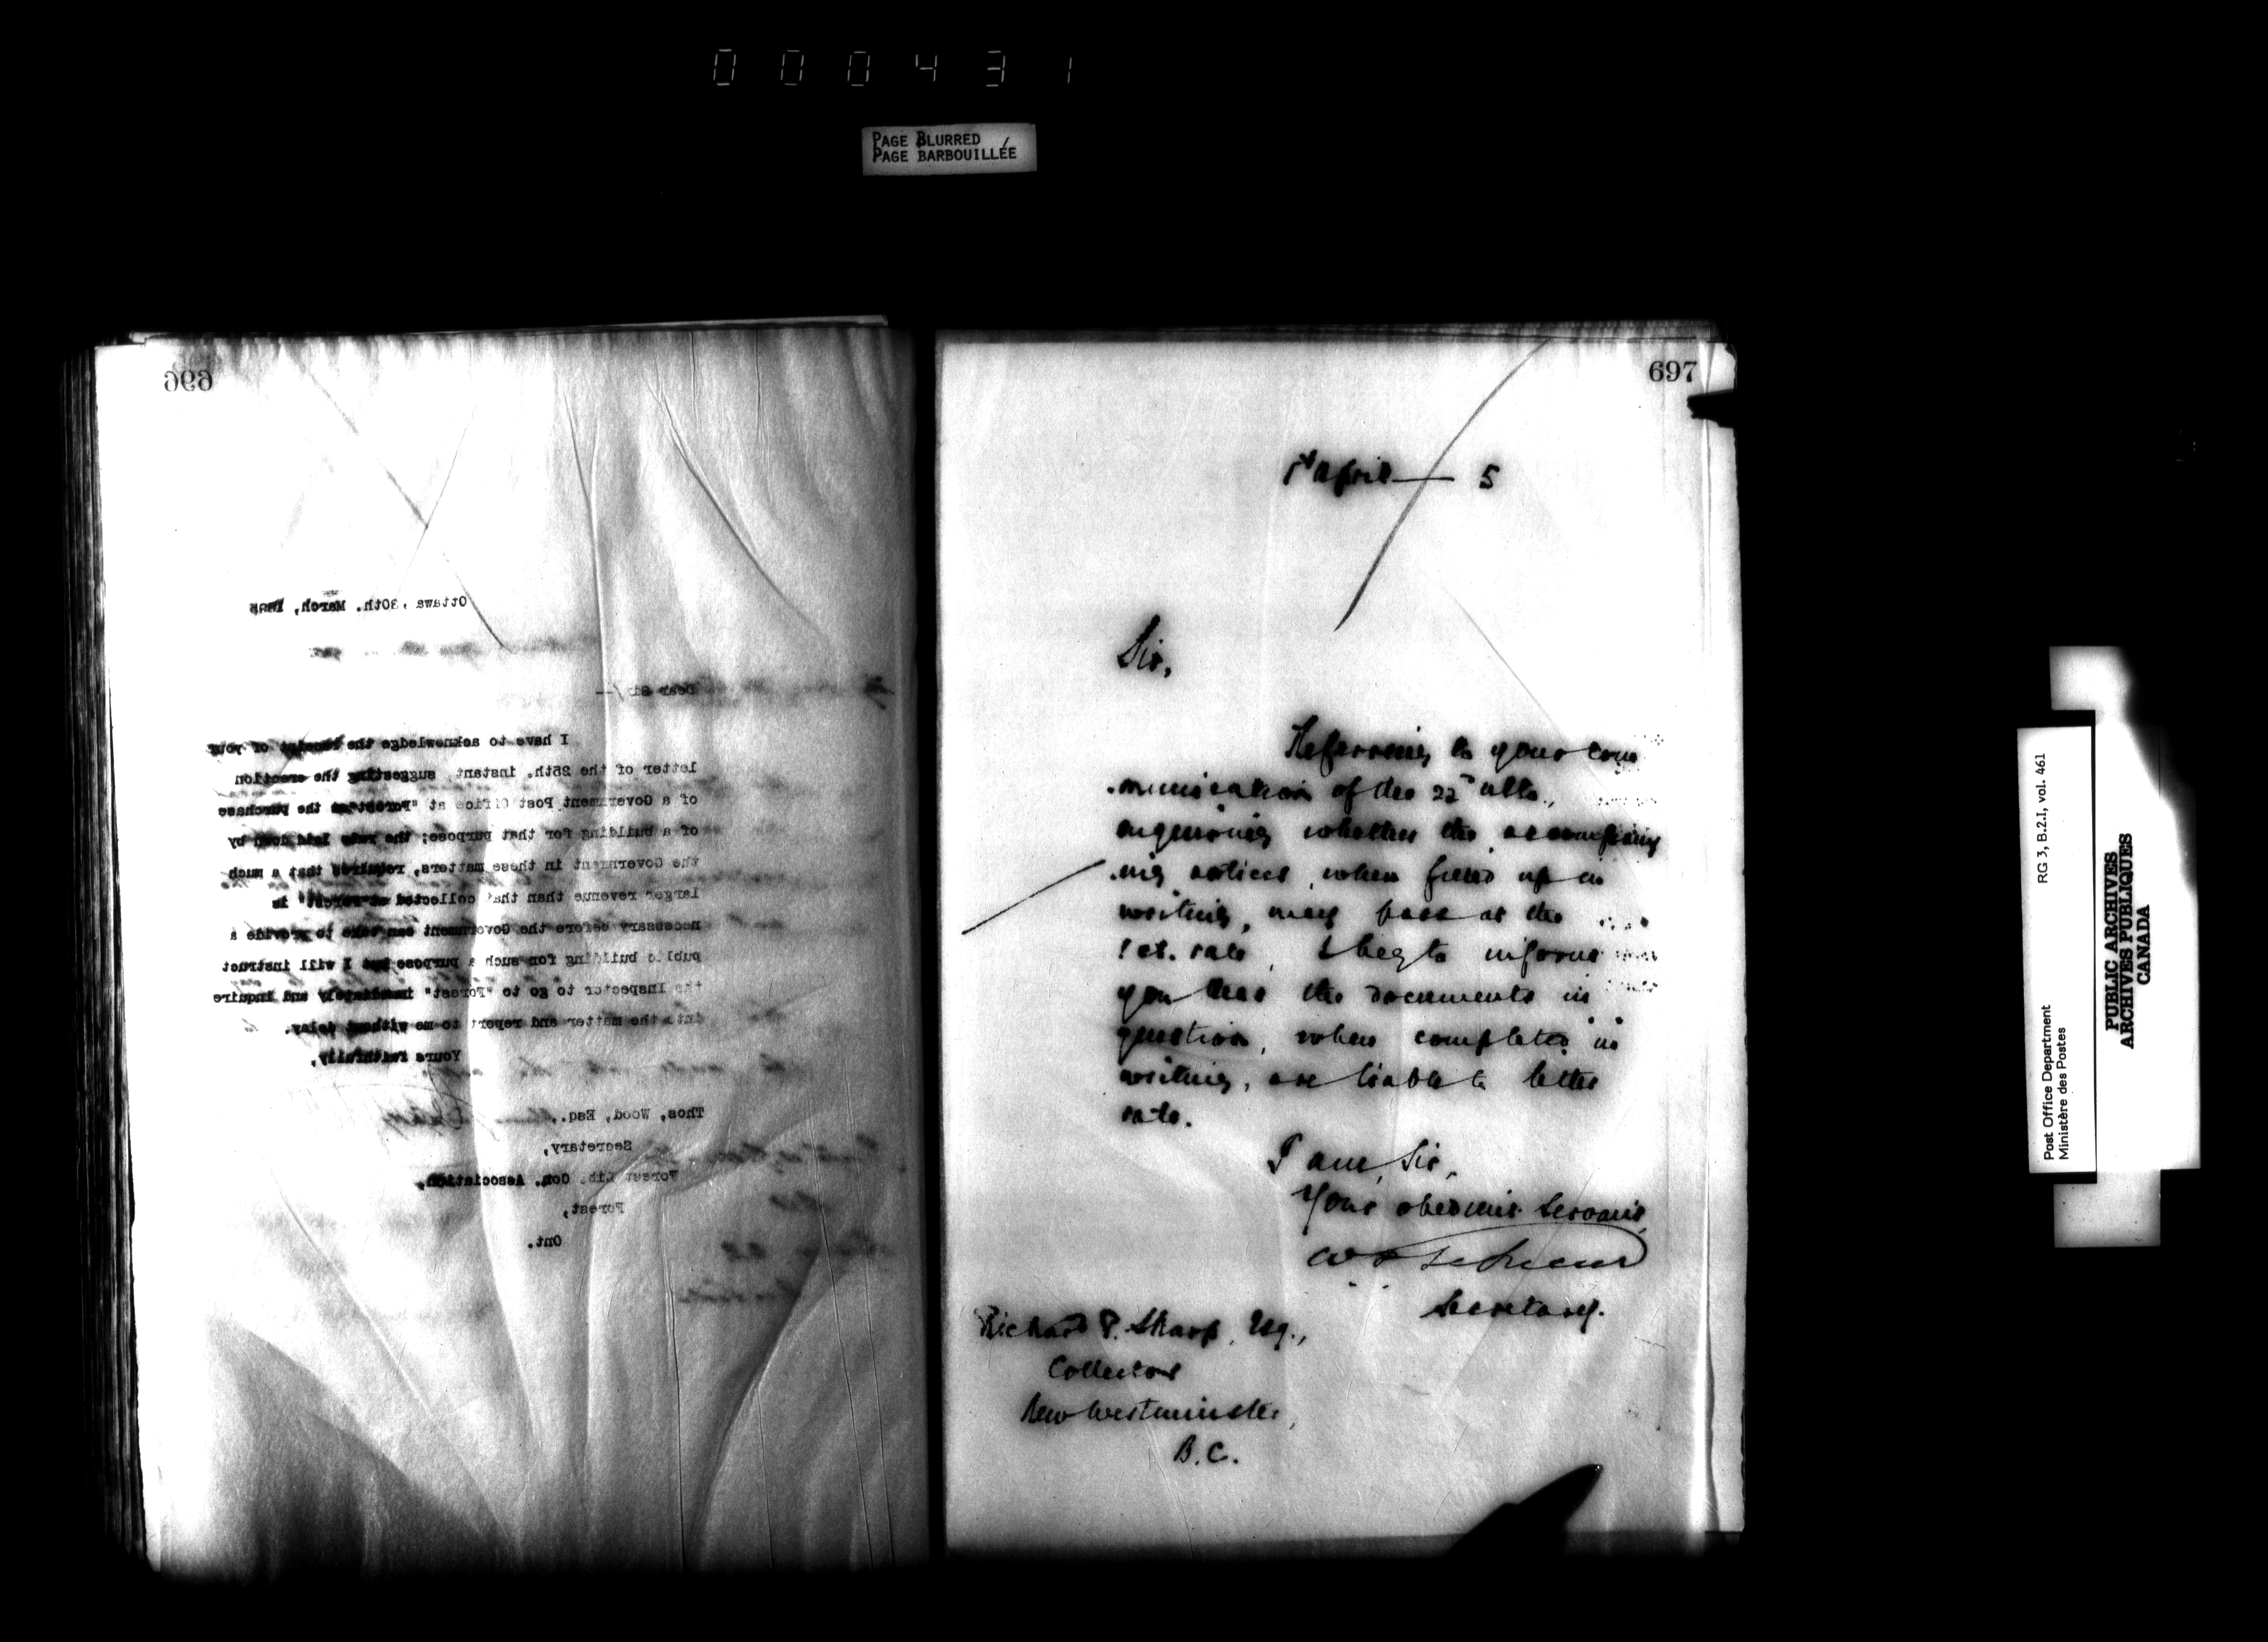 000431
PAGE BLURRED
PAGE BARBOUILLÉE
696
Ottawa, 30th. March, 1895
Dear Sir/—
I have to acknowledge the receipt of your
letter of the 25th. instant, suggesting the erection
of a Government Post Office at "Forest" or the purchase
of a building for that purpose; the rule laid down by
the Government in these matters, requires that a much
larger revenue than that collected at "Forest" is
necessary before the Government can take to provide a
public building for such a purpose but I will instruct
the Inspector to go to "Forest" immediately and inquire
into the matter and report to me without delay.
Yours faithfully,
Thos, Wood, Esq.,
Secretary,
Forest Lib. Con. Association,
Forest,
Ont.
697
1st April — 5
Sir,
Referring to your com
-munication of the 22nd ulto.,
enquiring whether the accompany
-ing notices, when filled up in
writing, may pass at the
1 ct. rate, I beg to inform
you that the documents in
question, when completed in
writing, are liable to letter
rate.
I am, Sir,
Your obedient Servant,
Secretary.
Richard P. Sharp, Esq.,
Collector
New Westminster,
B.C.
Post Office Department
Ministère des Postes
RG 3, B.2.I, vol. 461
PUBLIC ARCHIVES
ARCHIVES PUBLIQUES
CANADA